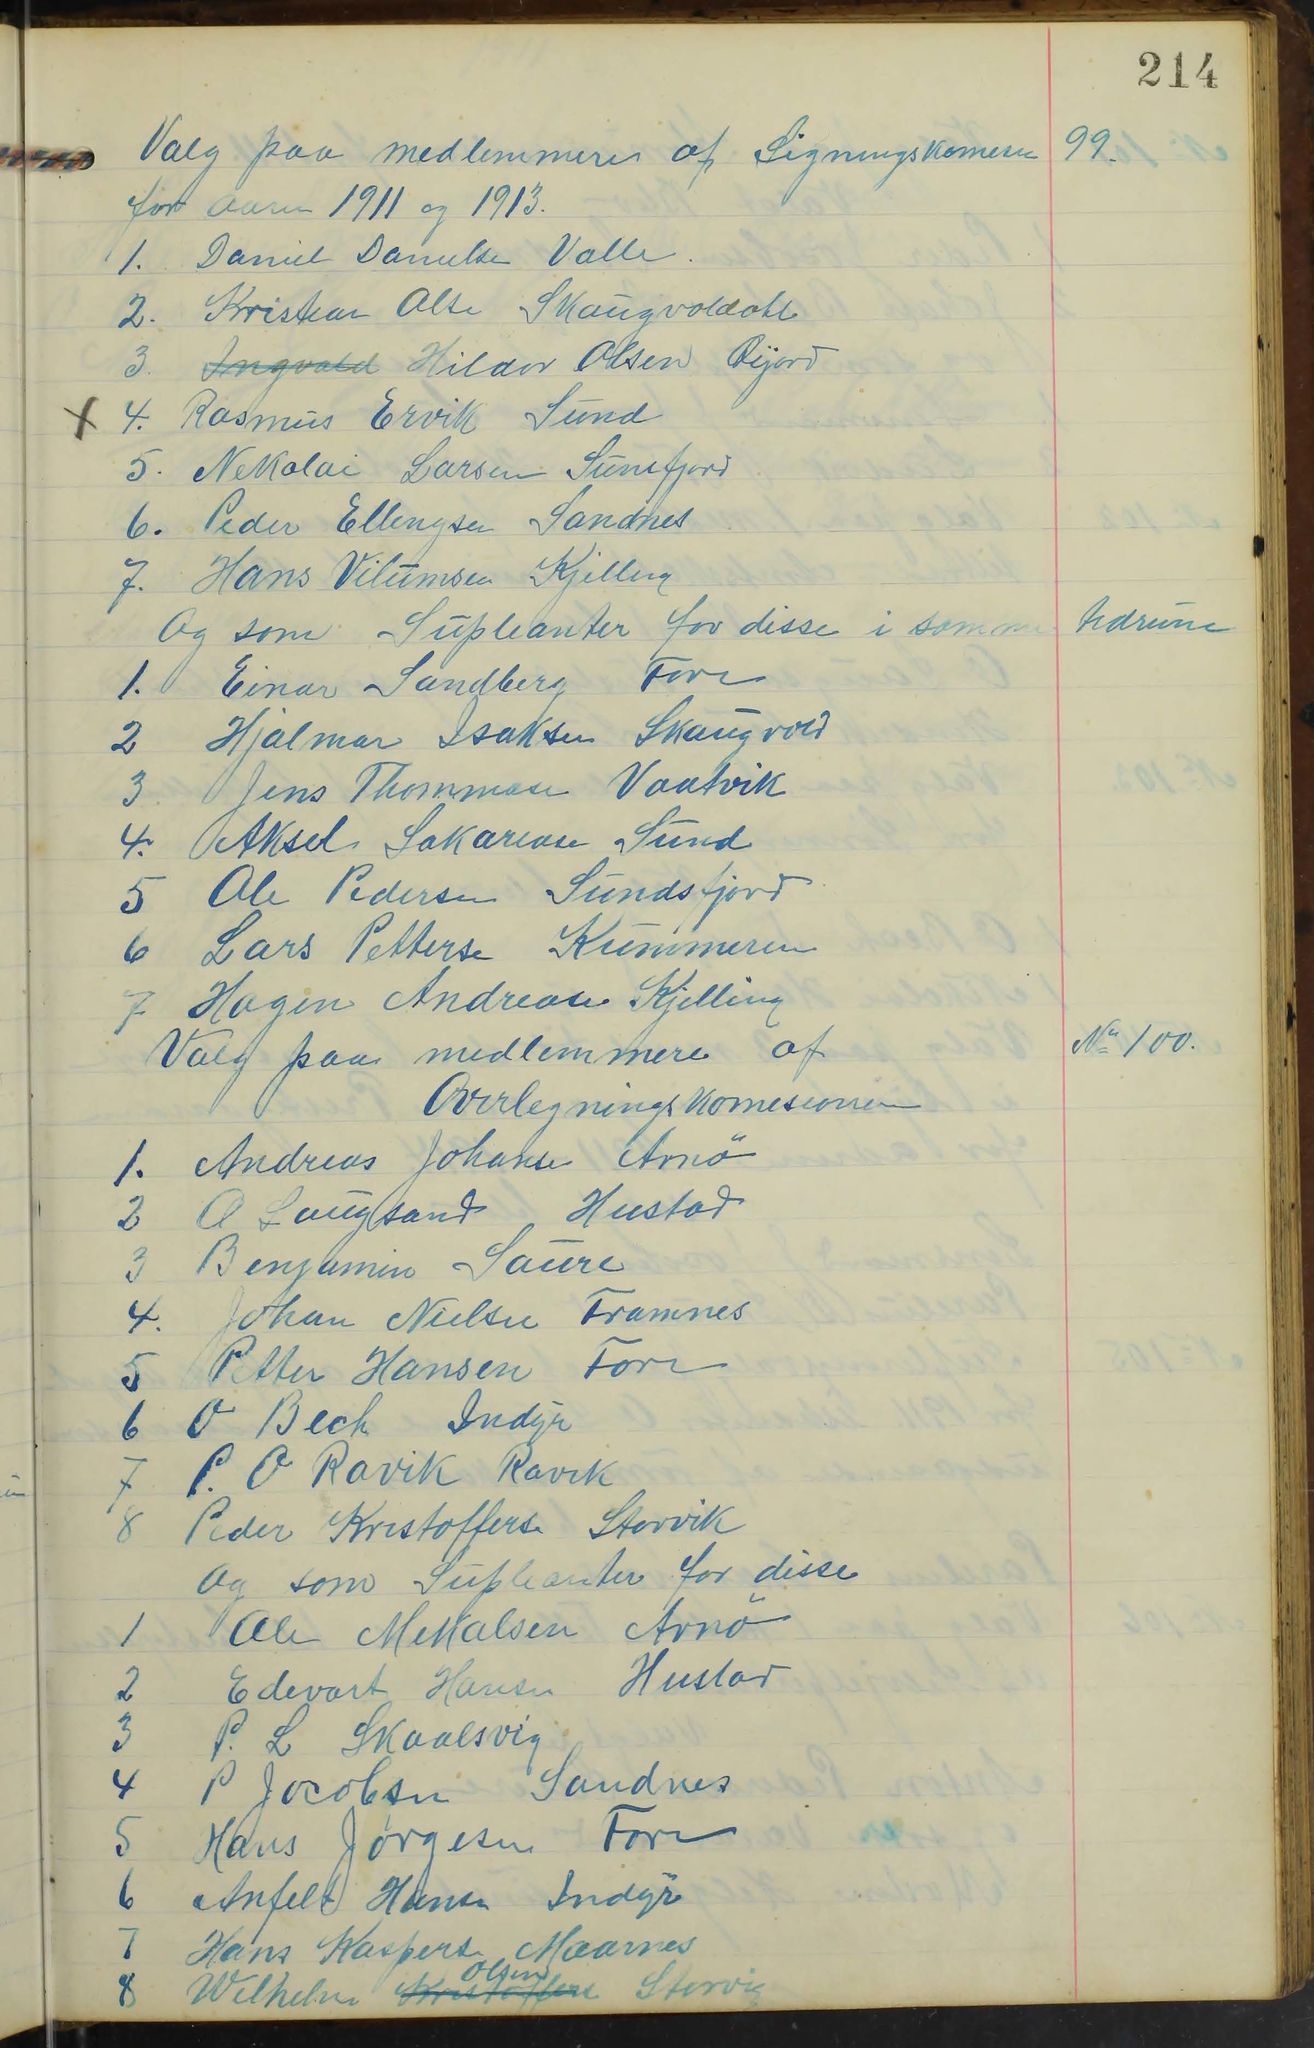 214
Valg paa medlemmere af Ligningskomesen 99.
for aaren 1911 og 1913.
1. Daniel Danielse Valle.
2. Kristian Olse Skaugvoldall
3. Ingvald Hildor Olsen Øijord
X 4. Rasmus Ervik Sund
5. Nekolai Larsen Sunsfjord
6. Peder Ellengsen Sandnes
7. Hans Vilumsen Kjelling
Og som Supleanter for disse i samme tidrum
1. Einar Sandberg Fore
2 Hjalmar Isaksen Skaugvold
3 Jens Thommase Vaatvik
4. Aksel Sakariase Sund
5 Ole Pedersen Sundsfjord
6 Lars Petterse Kummeren
7 Hagen Andrease Kjelling
Valg paa medlemmere af No 100.
Overlegningskomesionen
1. Andreas Johanse Arnö
2 A Laugsand Hustad
3 Benjamin Saure
4. Johan Nielsen Framnes
5 Petter Hansen Fore
6 O Bech Indyr
7 P. O Ravik Ravik
8 Peder Kristofferse Storvik
og som Supleanter for disse
1 Ole Mekalsen Arnö
2 Edevart Hansen Hustad
3 P. L Skaalsvig
4 P Jacobsen Sandnes
5 Hans Jørgesen Fore
6 Anfelt Hansen Indyr
7 Hans Kasperse Maarnes
8 Wilhelm Kristoffere Olsen Storvig